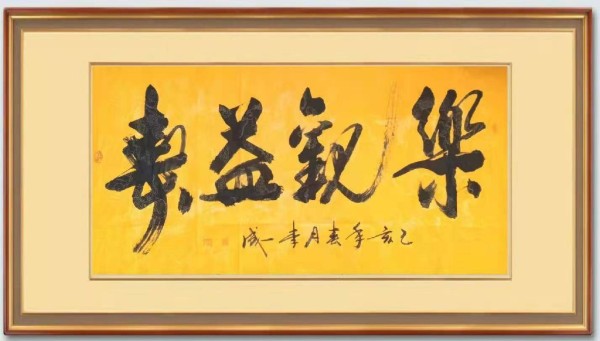 樂觀益壽
己亥年春月李一成